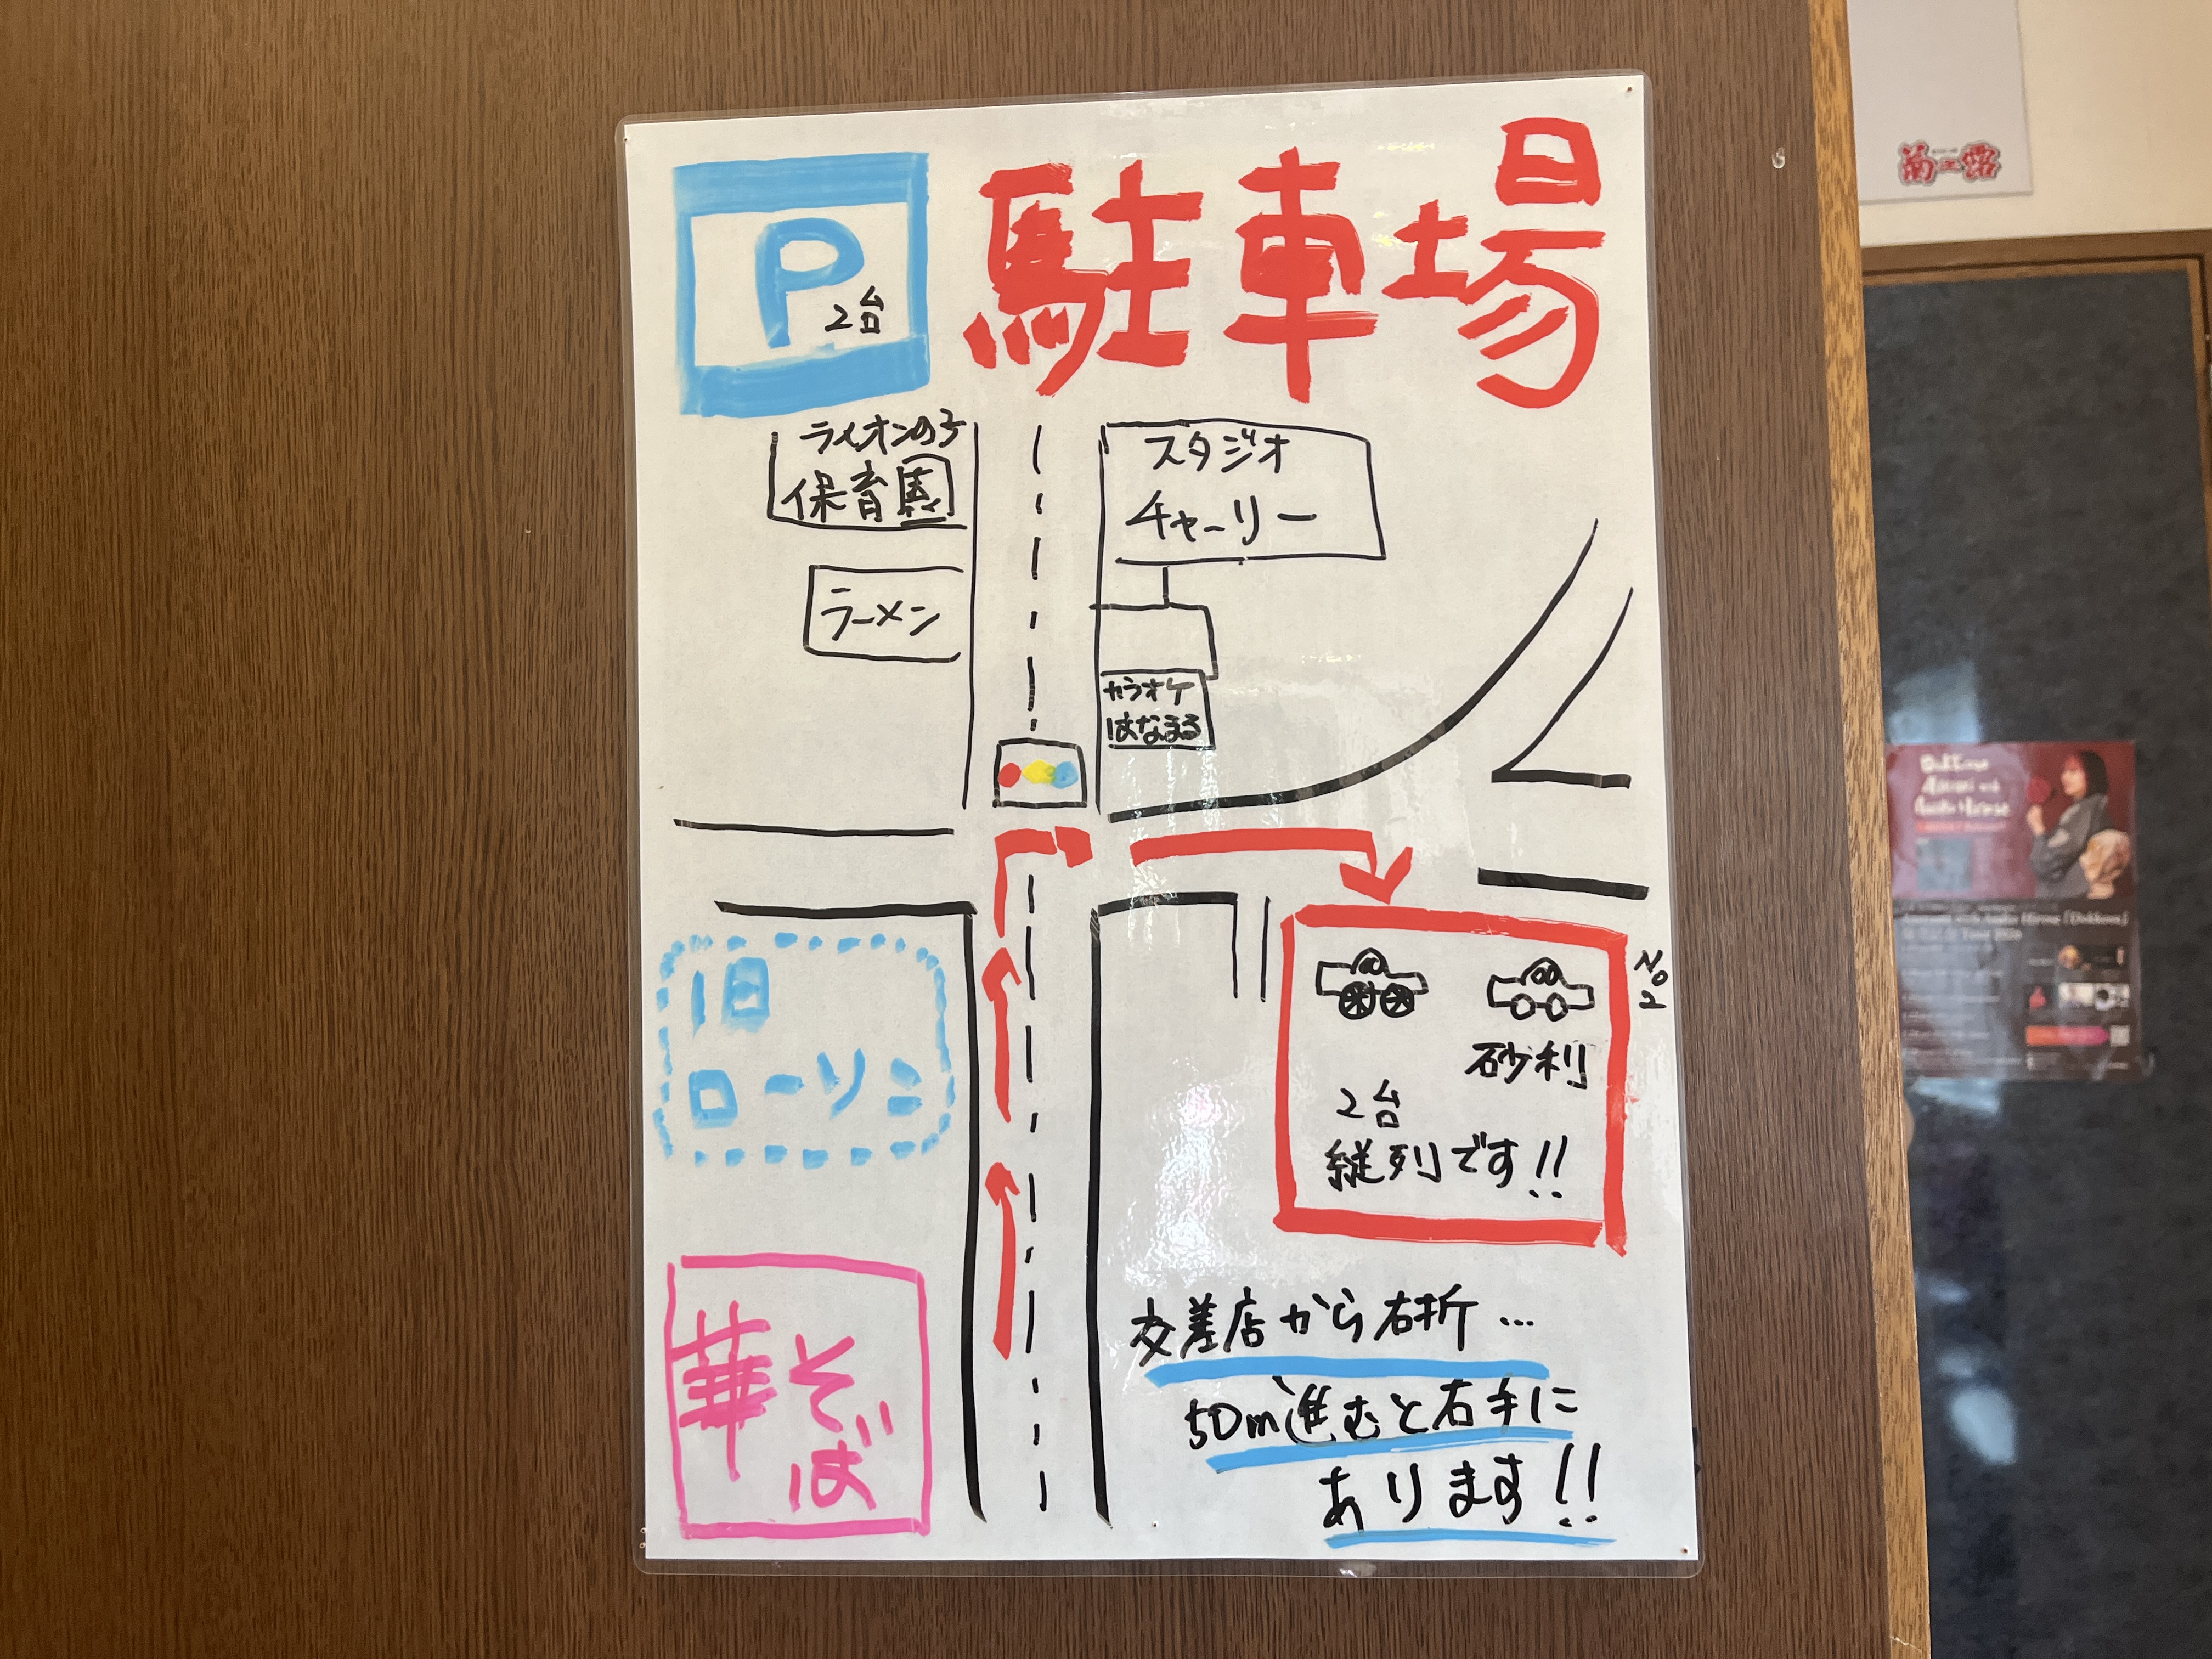 駐車場
P
2台
ライオンの子
保育園
スタジオ
チャーリー
ラーメン
カラオケ
はなまる
旧
ローソン
No2
砂利
2台
縦列です!!
華そば
交差店から右折…
50m進むと右手に
あります!!
菊之露